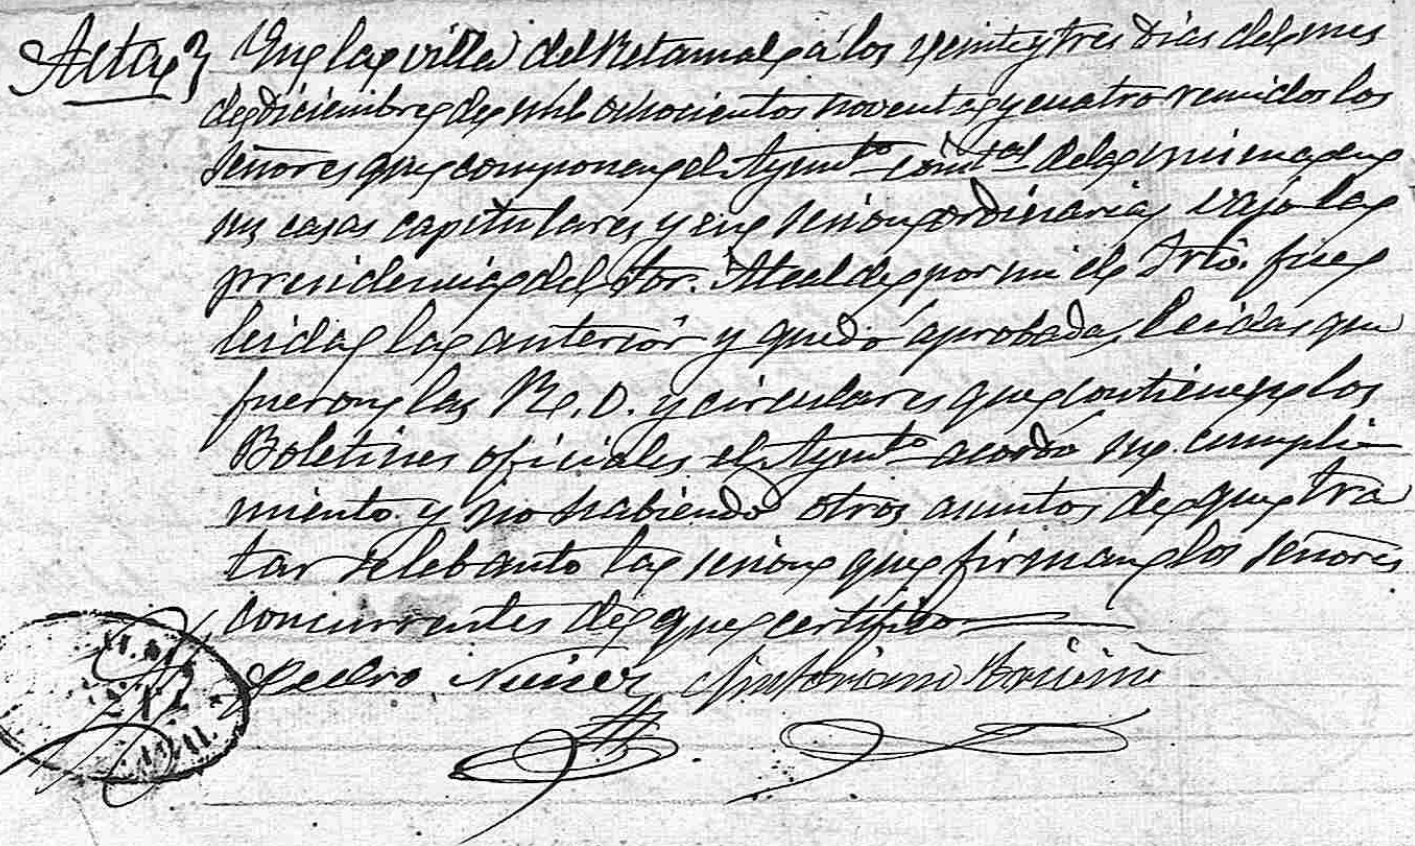 Acta En la villa del Retamal a los veinte y tres dias del mes
de diciembre de mil ochocientos noventa y cuatro reunidos los
señores que componen el Aymto. de la misma en
sus casas capitulares y en sesion ordinaria vajo la
presidencia del Sor. Alcalde por mi el Srio. fue
leida la anterior y quedó aprobada, leidas que
fueron las R. O. y circulares que contienen los
Boletines oficiales el Aymto acordo su cumpli-
miento y no habiendo otros asuntos de que tra
tar se lebanto la sesion que firman los señores
concurrentes de que certifico
Pedro Nuñez